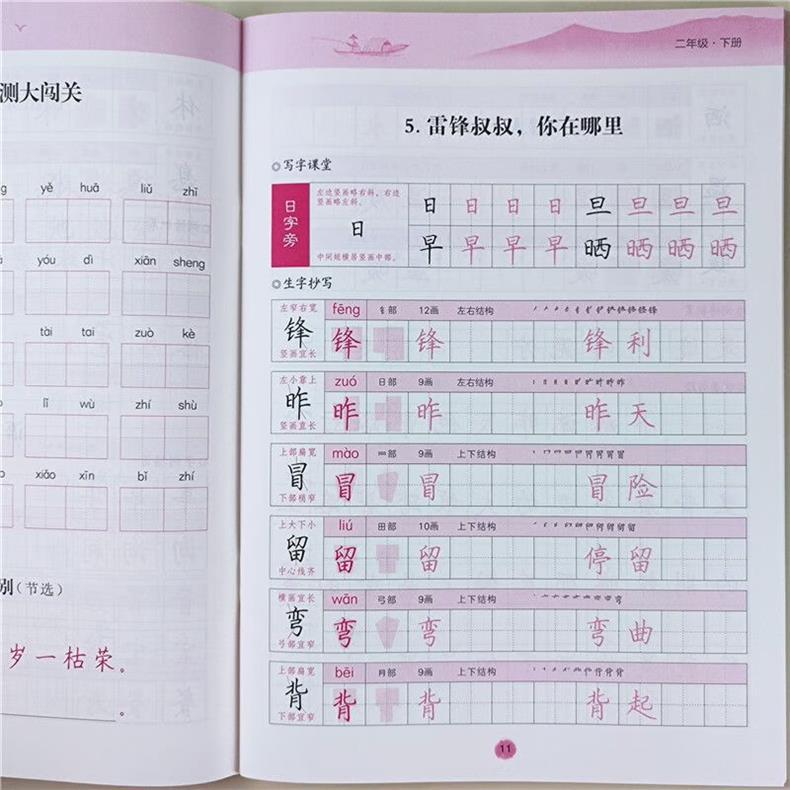 测大闯关
yě huā liǔ zhī
yóu dì xiān sheng
tài tai zuò kè
lǐ wù zhí shù
xiǎo xīn bǐ zhí
别(节选)
岁一枯荣。
。
二年级·下册
5. 雷锋叔叔，你在哪里
写字课堂
日字旁
左边竖画略右斜，右边
竖画略左斜。
日
中间短横居竖画中部。
日 日 日 日 旦 旦 旦 旦
早 早 早 早 晒 晒 晒 晒
生字抄写
左窄右宽 fēng 钅部 12画 左右结构
锋 锋 锋 锋利
竖画宜长
左小靠上 zuó 日部 9画 左右结构
昨 昨 昨 昨天
竖画宜长
上部扁宽 mào 9画 上下结构
冒 冒 冒 冒险
下部稍窄
上大下小 liú 田部 10画 上下结构
留 留 留 停留
中心线齐
横画宜长 wān 弓部 9画 上下结构
弯 弯 弯 弯曲
弓部宜窄
上部扁宽 bēi 9画 上下结构
背 背 背 背起
下部宜窄
11